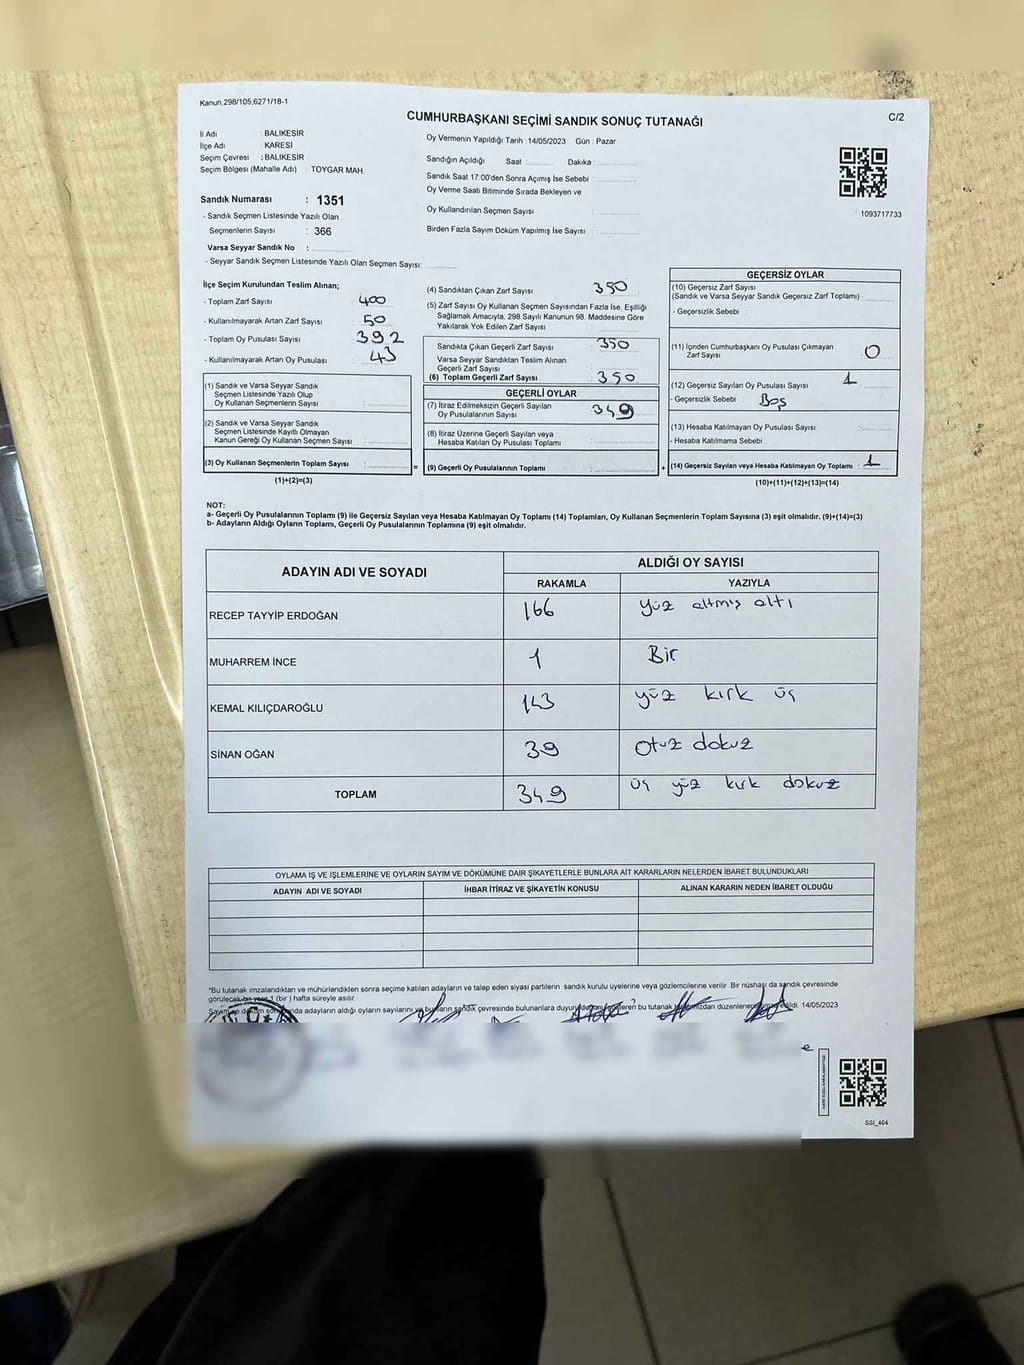 Kanun.298/105;6271/18-1
CUMHURBAŞKANI SEÇİMİ SANDIK SONUÇ TUTANAĞI
C/2
İl Adı : BALIKESİR
İlçe Adı : KARESİ
Seçim Çevresi : BALIKESİR
Seçim Bölgesi (Mahalle Adı) : TOYGAR MAH.
Sandık Numarası : 1351
- Sandık Seçmen Listesinde Yazılı Olan
Seçmenlerin Sayısı : 366
Varsa Seyyar Sandık No :
- Seyyar Sandık Seçmen Listesinde Yazılı Olan Seçmen Sayısı:
Oy Vermenin Yapıldığı Tarih :14/05/2023 Gün : Pazar
Sandığın Açıldığı Saat Dakika :
Sandık Saat 17:00'den Sonra Açımış İse Sebebi :
Oy Verme Saati Bitiminde Sırada Bekleyen ve
Oy Kullandırılan Seçmen Sayısı :
Birden Fazla Sayım Döküm Yapılmış İse Sayısı :
1093717733
İlçe Seçim Kurulundan Teslim Alınan;
- Toplam Zarf Sayısı : 400
- Kullanılmayarak Artan Zarf Sayısı : 50
- Toplam Oy Pusulası Sayısı : 392
- Kullanılmayarak Artan Oy Pusulası : 43
(1) Sandık ve Varsa Seyyar Sandık
Seçmen Listesinde Yazılı Olup
Oy Kullanan Seçmenlerin Sayısı :
(2) Sandık ve Varsa Seyyar Sandık
Seçmen Listesinde Kayıtlı Olmayan
Kanun Gereği Oy Kullanan Seçmen Sayısı :
(3) Oy Kullanan Seçmenlerin Toplam Sayısı :
(1)+(2)=(3)
(4) Sandıktan Çıkan Zarf Sayısı : 350
(5) Zarf Sayısı Oy Kullanan Seçmen Sayısından Fazla İse, Eşitliği
Sağlamak Amacıyla, 298 Sayılı Kanunun 98. Maddesine Göre
Yakılarak Yok Edilen Zarf Sayısı :
Sandıkta Çıkan Geçerli Zarf Sayısı : 350
Varsa Seyyar Sandıktan Teslim Alınan
Geçerli Zarf Sayısı :
(6) Toplam Geçerli Zarf Sayısı : 350
GEÇERLİ OYLAR
(7) İtiraz Edilmeksizin Geçerli Sayılan
Oy Pusulalarının Sayısı : 349
(8) İtiraz Üzerine Geçerli Sayılan veya
Hesaba Katılan Oy Pusulası Toplamı :
= (9) Geçerli Oy Pusulalarının Toplamı :
GEÇERSİZ OYLAR
(10) Geçersiz Zarf Sayısı
(Sandık ve Varsa Seyyar Sandık Geçersiz Zarf Toplamı) :
- Geçersizlik Sebebi :
(11) İçinden Cumhurbaşkanı Oy Pusulası Çıkmayan
Zarf Sayısı : 0
(12) Geçersiz Sayılan Oy Pusulası Sayısı : 1
- Geçersizlik Sebebi : Boş
(13) Hesaba Katılmayan Oy Pusulası Sayısı :
- Hesaba Katılmama Sebebi :
+ (14) Geçersiz Sayılan veya Hesaba Katılmayan Oy Toplamı : 1
(10)+(11)+(12)+(13)=(14)
NOT:
a- Geçerli Oy Pusulalarının Toplamı (9) ile Geçersiz Sayılan veya Hesaba Katılmayan Oy Toplamı (14) Toplamları, Oy Kullanan Seçmenlerin Toplam Sayısına (3) eşit olmalıdır. (9)+(14)=(3)
b- Adayların Aldığı Oyların Toplamı, Geçerli Oy Pusulalarının Toplamına (9) eşit olmalıdır.
ADAYIN ADI VE SOYADI ALDIĞI OY SAYISI
RAKAMLA YAZIYLA
RECEP TAYYİP ERDOĞAN 166 yüz altmış altı
MUHARREM İNCE 1 Bir
KEMAL KILIÇDAROĞLU 143 yüz kırk üç
SİNAN OĞAN 39 otuz dokuz
TOPLAM 349 üç yüz kırk dokuz
OYLAMA İŞ VE İŞLEMLERİNE VE OYLARIN SAYIM VE DÖKÜMÜNE DAİR ŞİKAYETLERLE BUNLARA AİT KARARLARIN NELERDEN İBARET BULUNDUKLARI
ADAYIN ADI VE SOYADI İHBAR İTİRAZ VE ŞİKAYETİN KONUSU ALINAN KARARIN NEDEN İBARET OLDUĞU
*Bu tutanak imzalandıktan ve mühürlendikten sonra seçime katılan adayların ve talep eden siyasi partilerin sandık kurulu üyelerine veya gözlemcilerine verilir. Bir nüshası da sandık çevresinde
görülecek bir yere 1 (bir) hafta süreyle asılır.
adayların aldığı oyların sayılarını çevresinde bulunanlara bu tutanak 14/05/2023
SSI_404